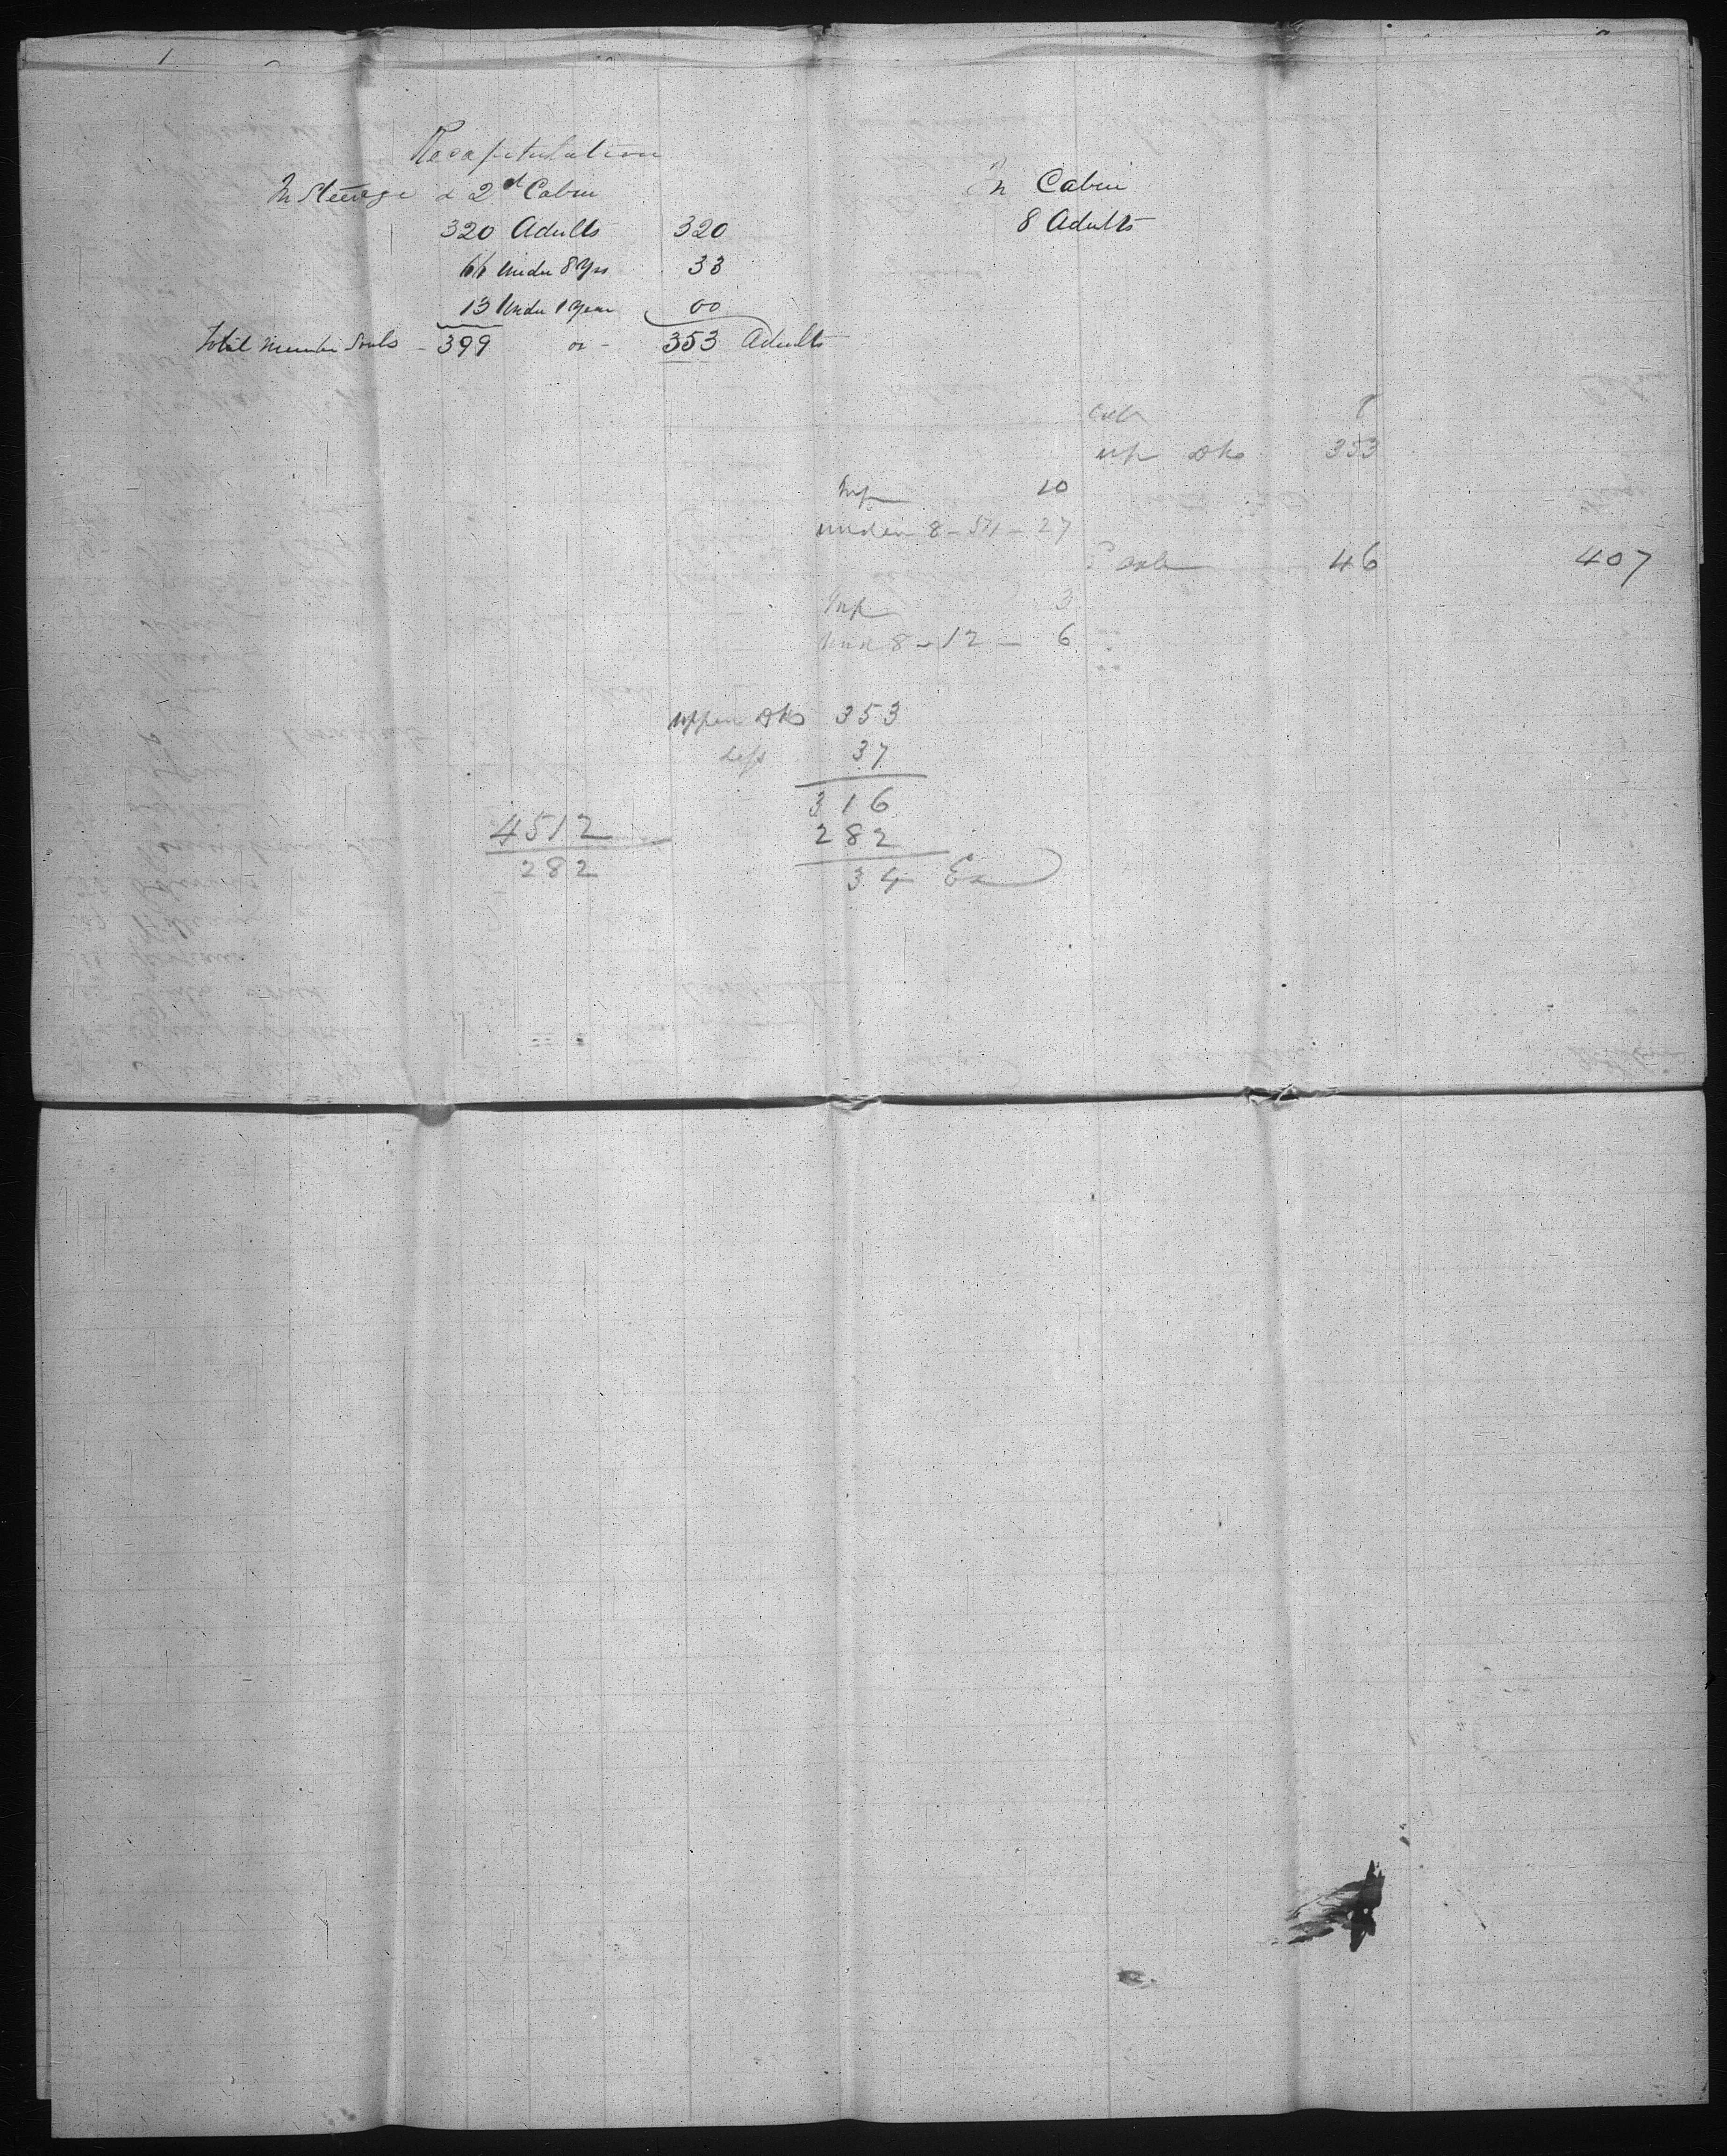 Recapitulation
In Steerage & 2d Cabin
320 Adults 320
66 Under 8 Yrs 33
13 Under 1 Year 00
Total Number Souls - 399 or - 353 Adults
In Cabin
8 Adults
Cab 8
up Dks 353
Inf 10
under 8 - 54 - 27
46 407
Inf 3
und 8 - 12 - 6
upper Dks 353
less 37
316
282
34 Ex
4512
282